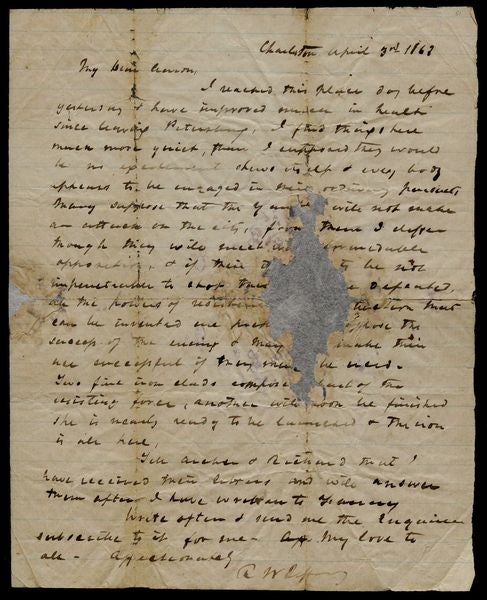 Charleston April 3rd 1863
My Dear
I reached this place day before
yesterday & have improved much in health
since leaving Petersburg, I find things here
much more quiet, than I supposed they would
be no excitement shows itself & every body
appears to be engaged in their ordinary pursuits
Many suppose that the Yankees will not make
an attack on the city, from them I differ
though they will meet formidable
opposition, & if their to be not
impenetrable to shop defeated,
all the powers of
can be invented are oppose the
success of the enemy & may make their
successful if they
Two fine iron clads compose part of the
resisting force, another will soon be finished
She is nearly ready to be launched & the iron
is all here,
Tell Archer & Richard that I
have received their letters and will answer
them after I have written to
Write often & send me the Enquirer
subscribe to it for me - My love to
all - Affectionately